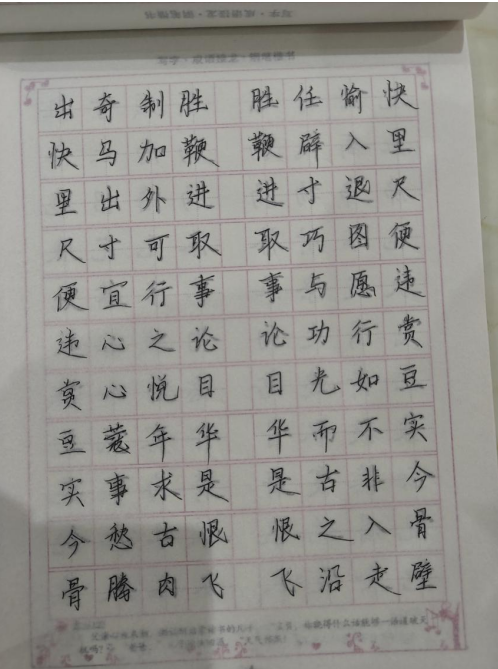 出奇制胜 胜任愉快
快马加鞭 鞭辟入里
里出外进 进寸退尺
尺寸可取 取巧图便
便宜行事 事与愿违
违心之论 论功行赏
赏心悦目 目光如豆
豆蔻年华 华而不实
实事求是 是古非今
今愁古恨 恨之入骨
骨腾肉飞 飞沿走壁